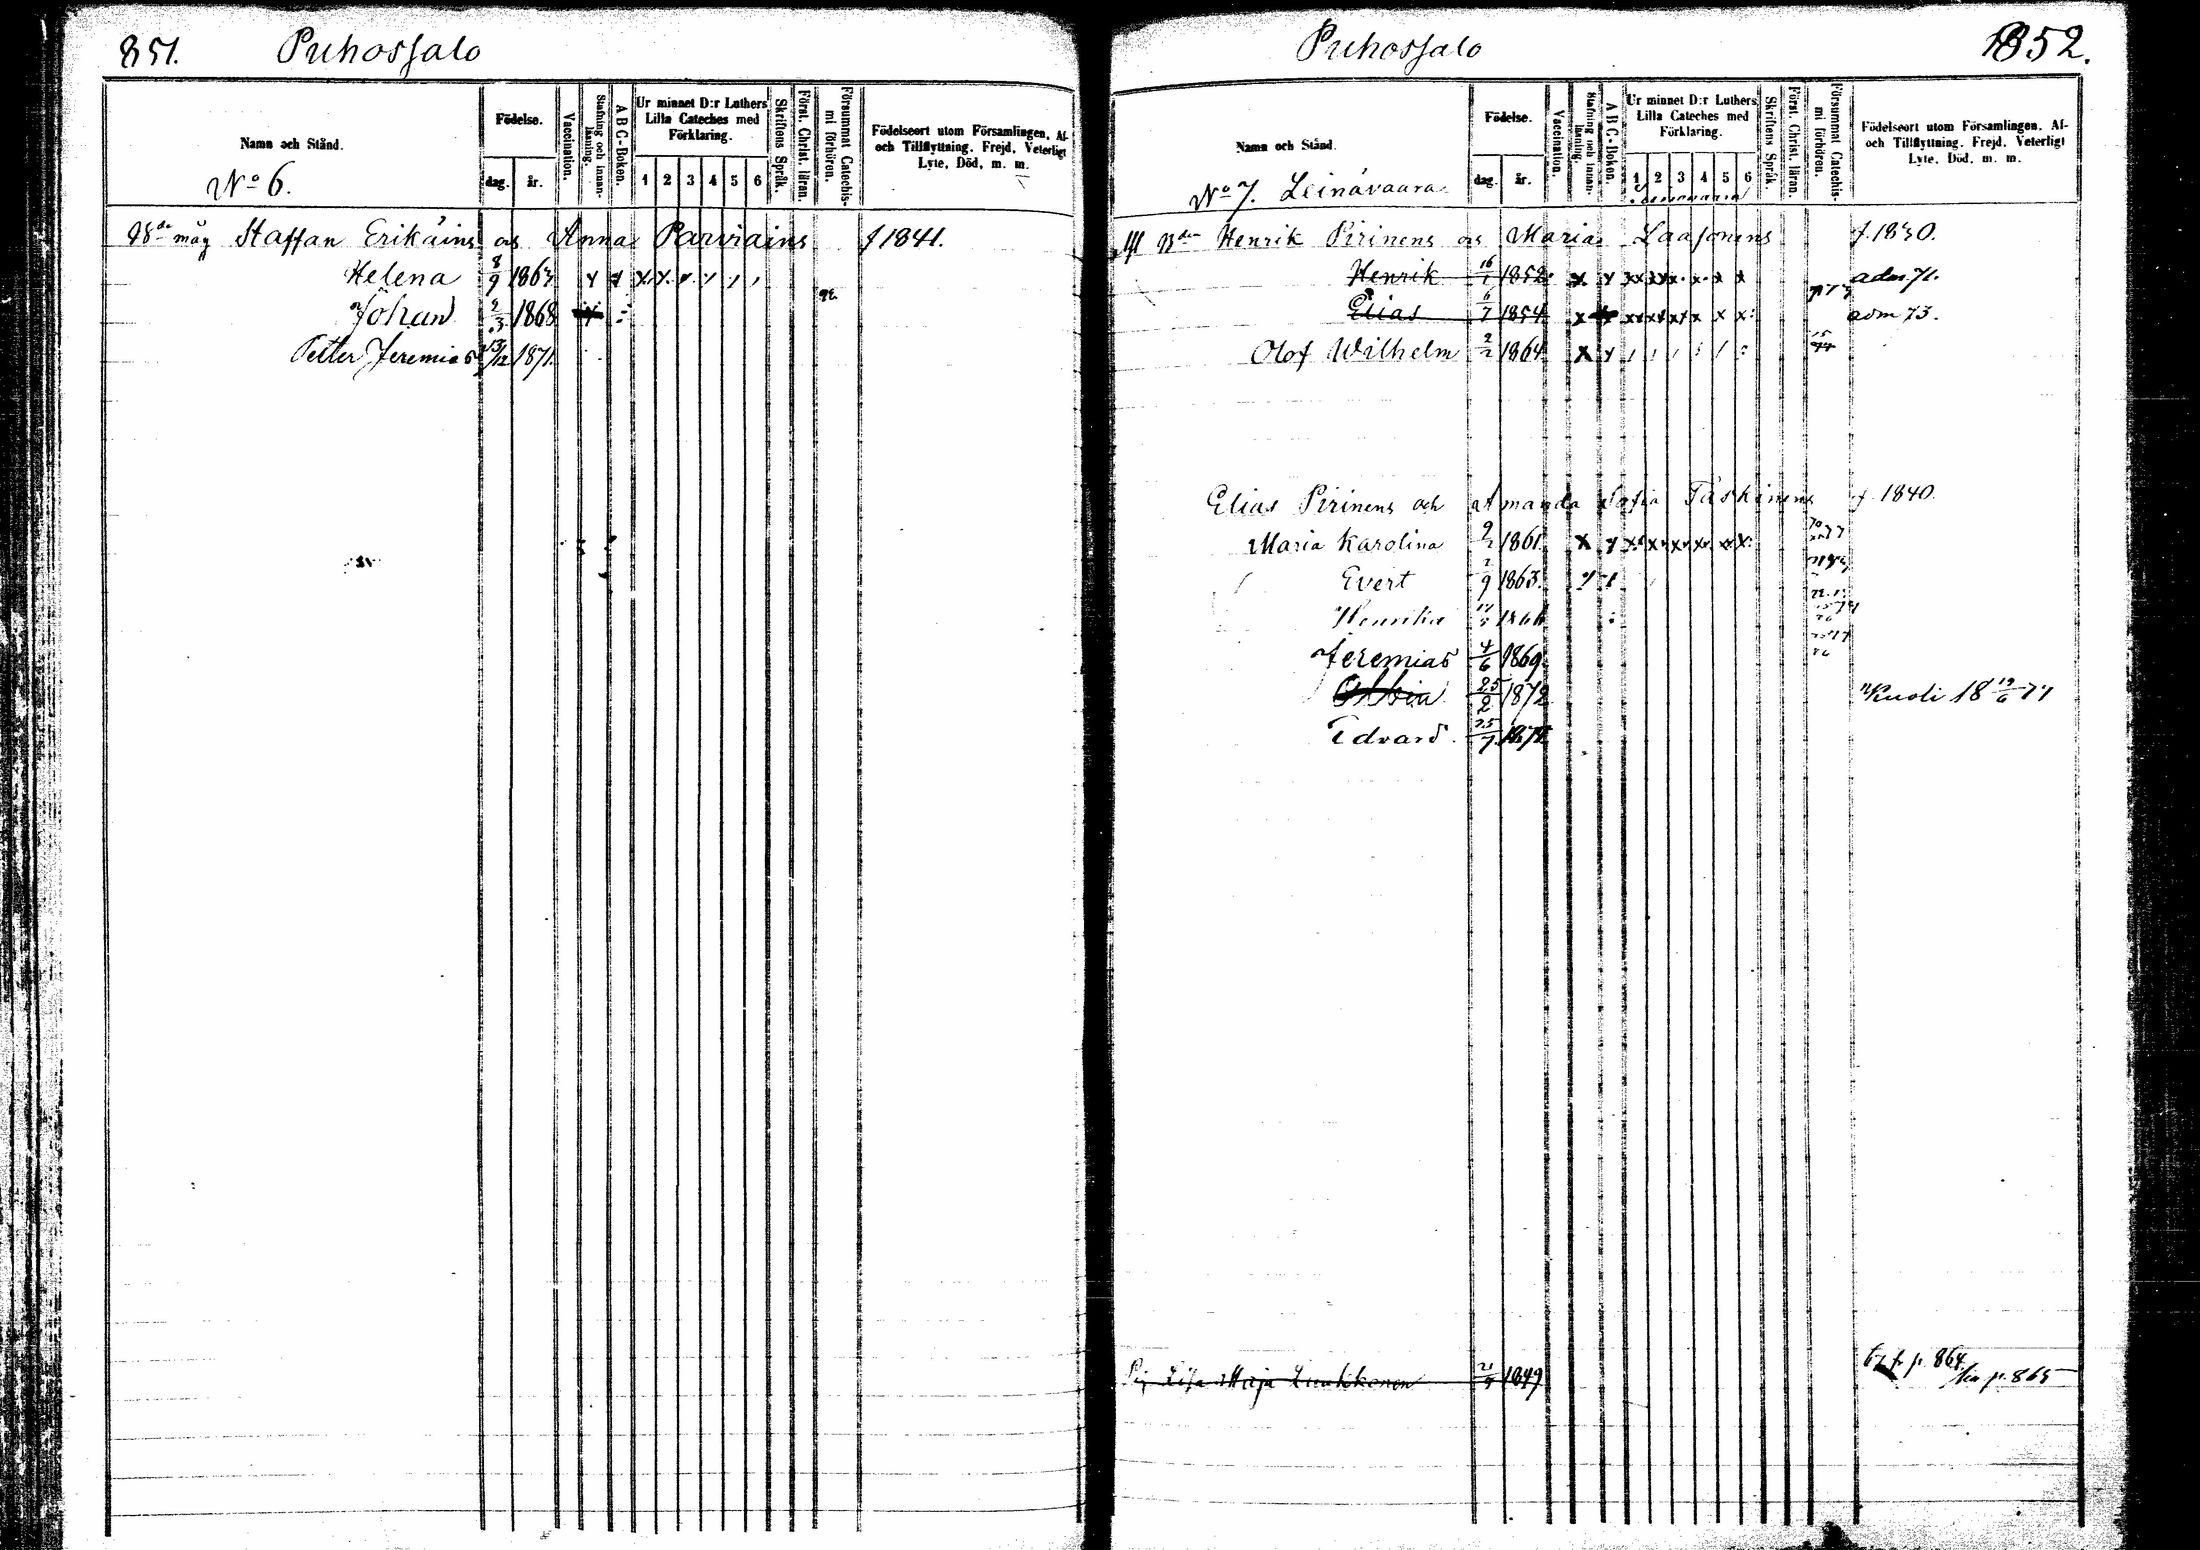 851. Puhossalo
Namn och Stånd.
No 6.
Födelse.
dag. år.
Vaccination.
Stafning och innan-läsning.
A B C-Boken.
Ur minnet D:r Luthers Lilla Cateches med Förklaring.
1 2 3 4 5 6
Skriftens Språk.
Först. Christ. läran.
Försummat Catechismi förhören.
Födelseort utom Församlingen, Af- och Tillflyttning. Frejd, Veterligt Lyte, Död, m. m.
måg Staffan Erikäins os Anna Parviains f 1841.
Helena 8/9 1863
Johan 2/3 1868
Petter Jeremias 1871.
Puhossalo 852.
Namn och Stånd.
No 7. Leinävaara
Födelse.
dag. år.
Vaccination.
Stafning och innan-läsning.
A B C-Boken.
Ur minnet D:r Luthers Lilla Cateches med Förklaring.
1 2 3 4 5 6
Skriftens Språk.
Först. Christ. läran.
Försummat Catechismi förhören.
Födelseort utom Församlingen, Af- och Tillflyttning. Frejd, Veterligt Lyte, Död, m. m.
Henrik Pirinens os Maria Laasonens f. 1830.
Henrik 1852 adm 71.
Elias 6/7 1854 adm 73.
Olof Wilhelm 2/2 1864
Elias Pirinens och Amanda Sofia Taskinens f. 1840.
Maria Karolina 1861
Evert 1863.
Henrika
Jeremias 4/6 1869
25/2 1872 Kuoli 18 19/6 77
Edvard 25/7
Lisa Maja Luukkonen 1849 p. 864 p. 865